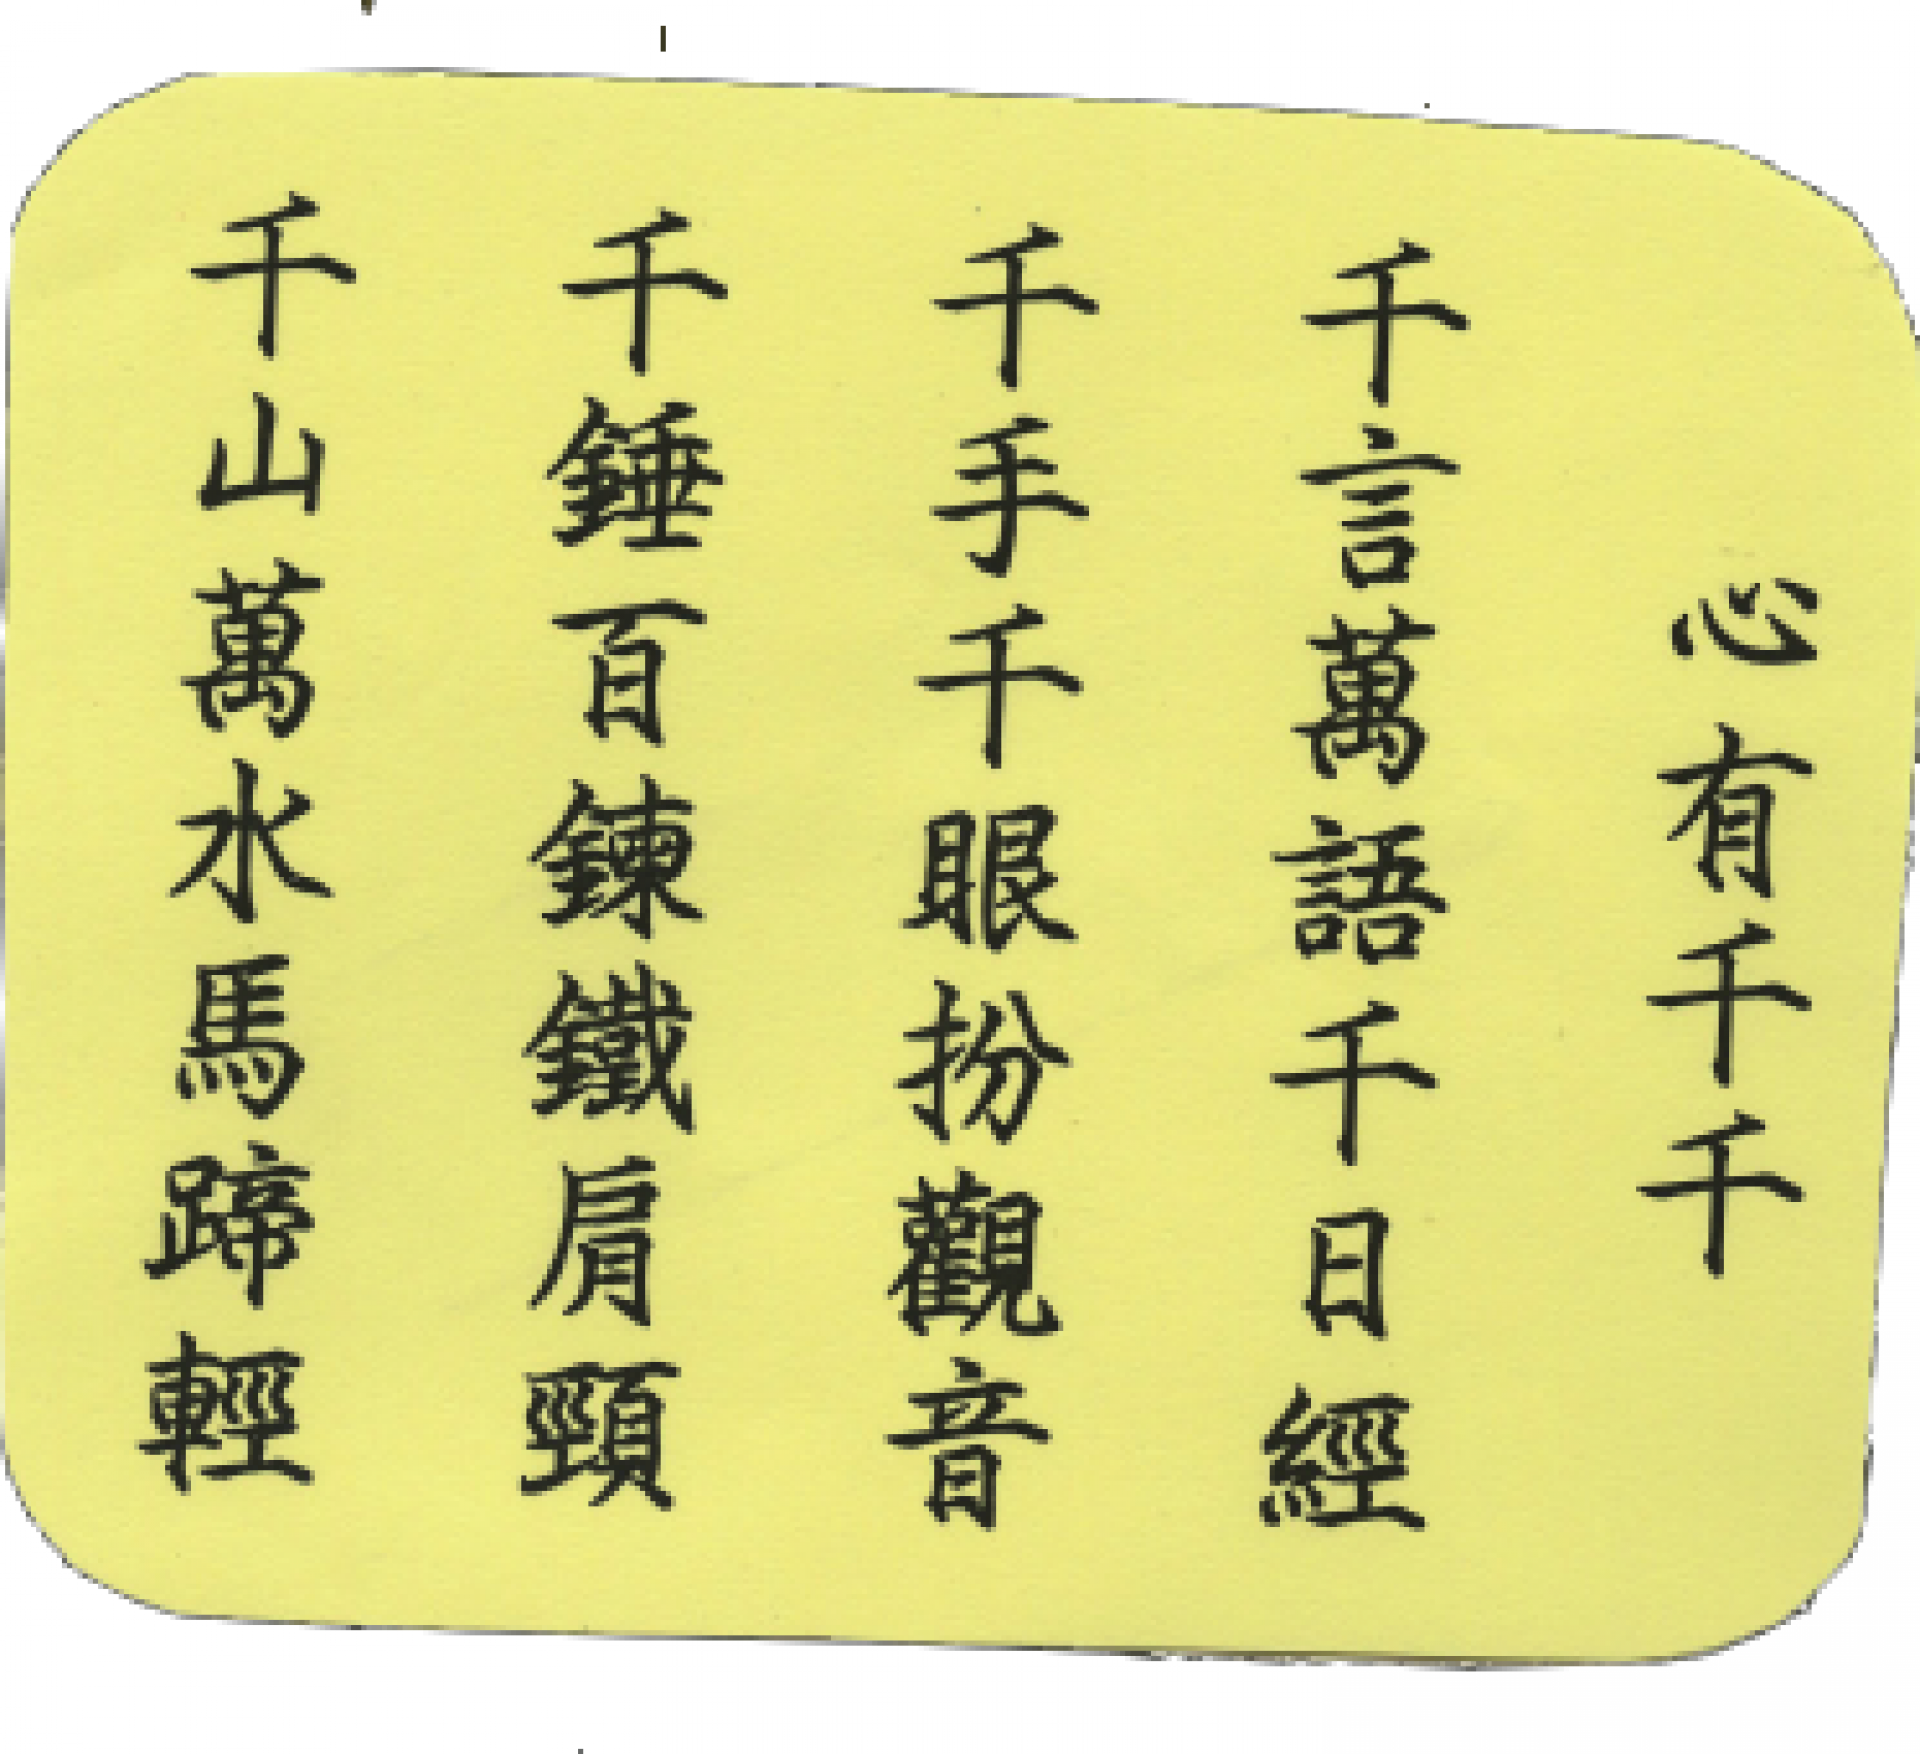 心有千千
千言萬語千日經
千手千眼扮觀音
千錘百鍊鐵肩頸
千山萬水馬蹄輕